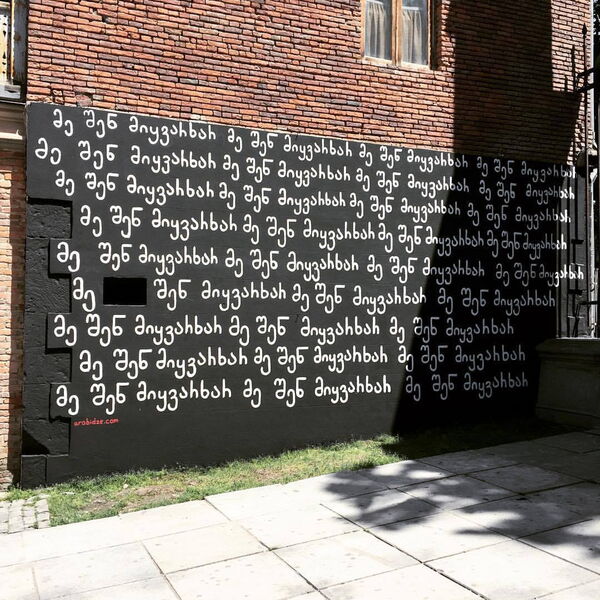 მე შენ მიყვარხარ მე შენ მიყვარხარ მე შენ მიყვარხარ მე შენ მიყვარხარ
მე შენ მიყვარხარ მე შენ მიყვარხარ მე შენ მიყვარხარ მე შენ მიყვარხარ
მე შენ მიყვარხარ მე შენ მიყვარხარ მე შენ მიყვარხარ მე შენ მიყვარხარ
მე შენ მიყვარხარ მე შენ მიყვარხარ მე შენ მიყვარხარ მე შენ მიყვარხარ
მე შენ მიყვარხარ მე შენ მიყვარხარ მე შენ მიყვარხარ მე შენ მიყვარხარ
მე შენ მიყვარხარ მე შენ მიყვარხარ მე შენ მიყვარხარ
მე შენ მიყვარხარ მე შენ მიყვარხარ მე შენ მიყვარხარ
მე შენ მიყვარხარ მე შენ მიყვარხარ მე შენ მიყვარხარ
მე შენ მიყვარხარ მე შენ მიყვარხარ მე შენ მიყვარხარ
arabidze.com